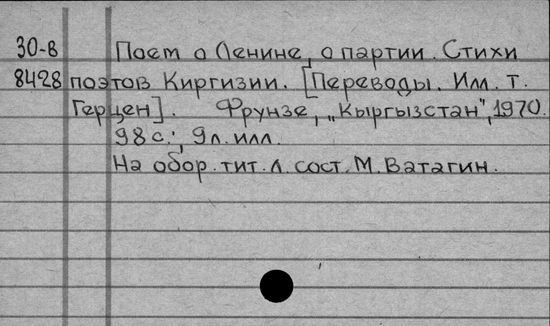 30-в Поет о Ленине, о партии. Стихи
8428 поэтов Киргизии. [Переводы. Илл. Т.
Герцен]. Фрунзе, „Кыргызстан", 1970.
98 с.; 9 л. илл.
На обор. тит. л. сост. М. Ватагин.